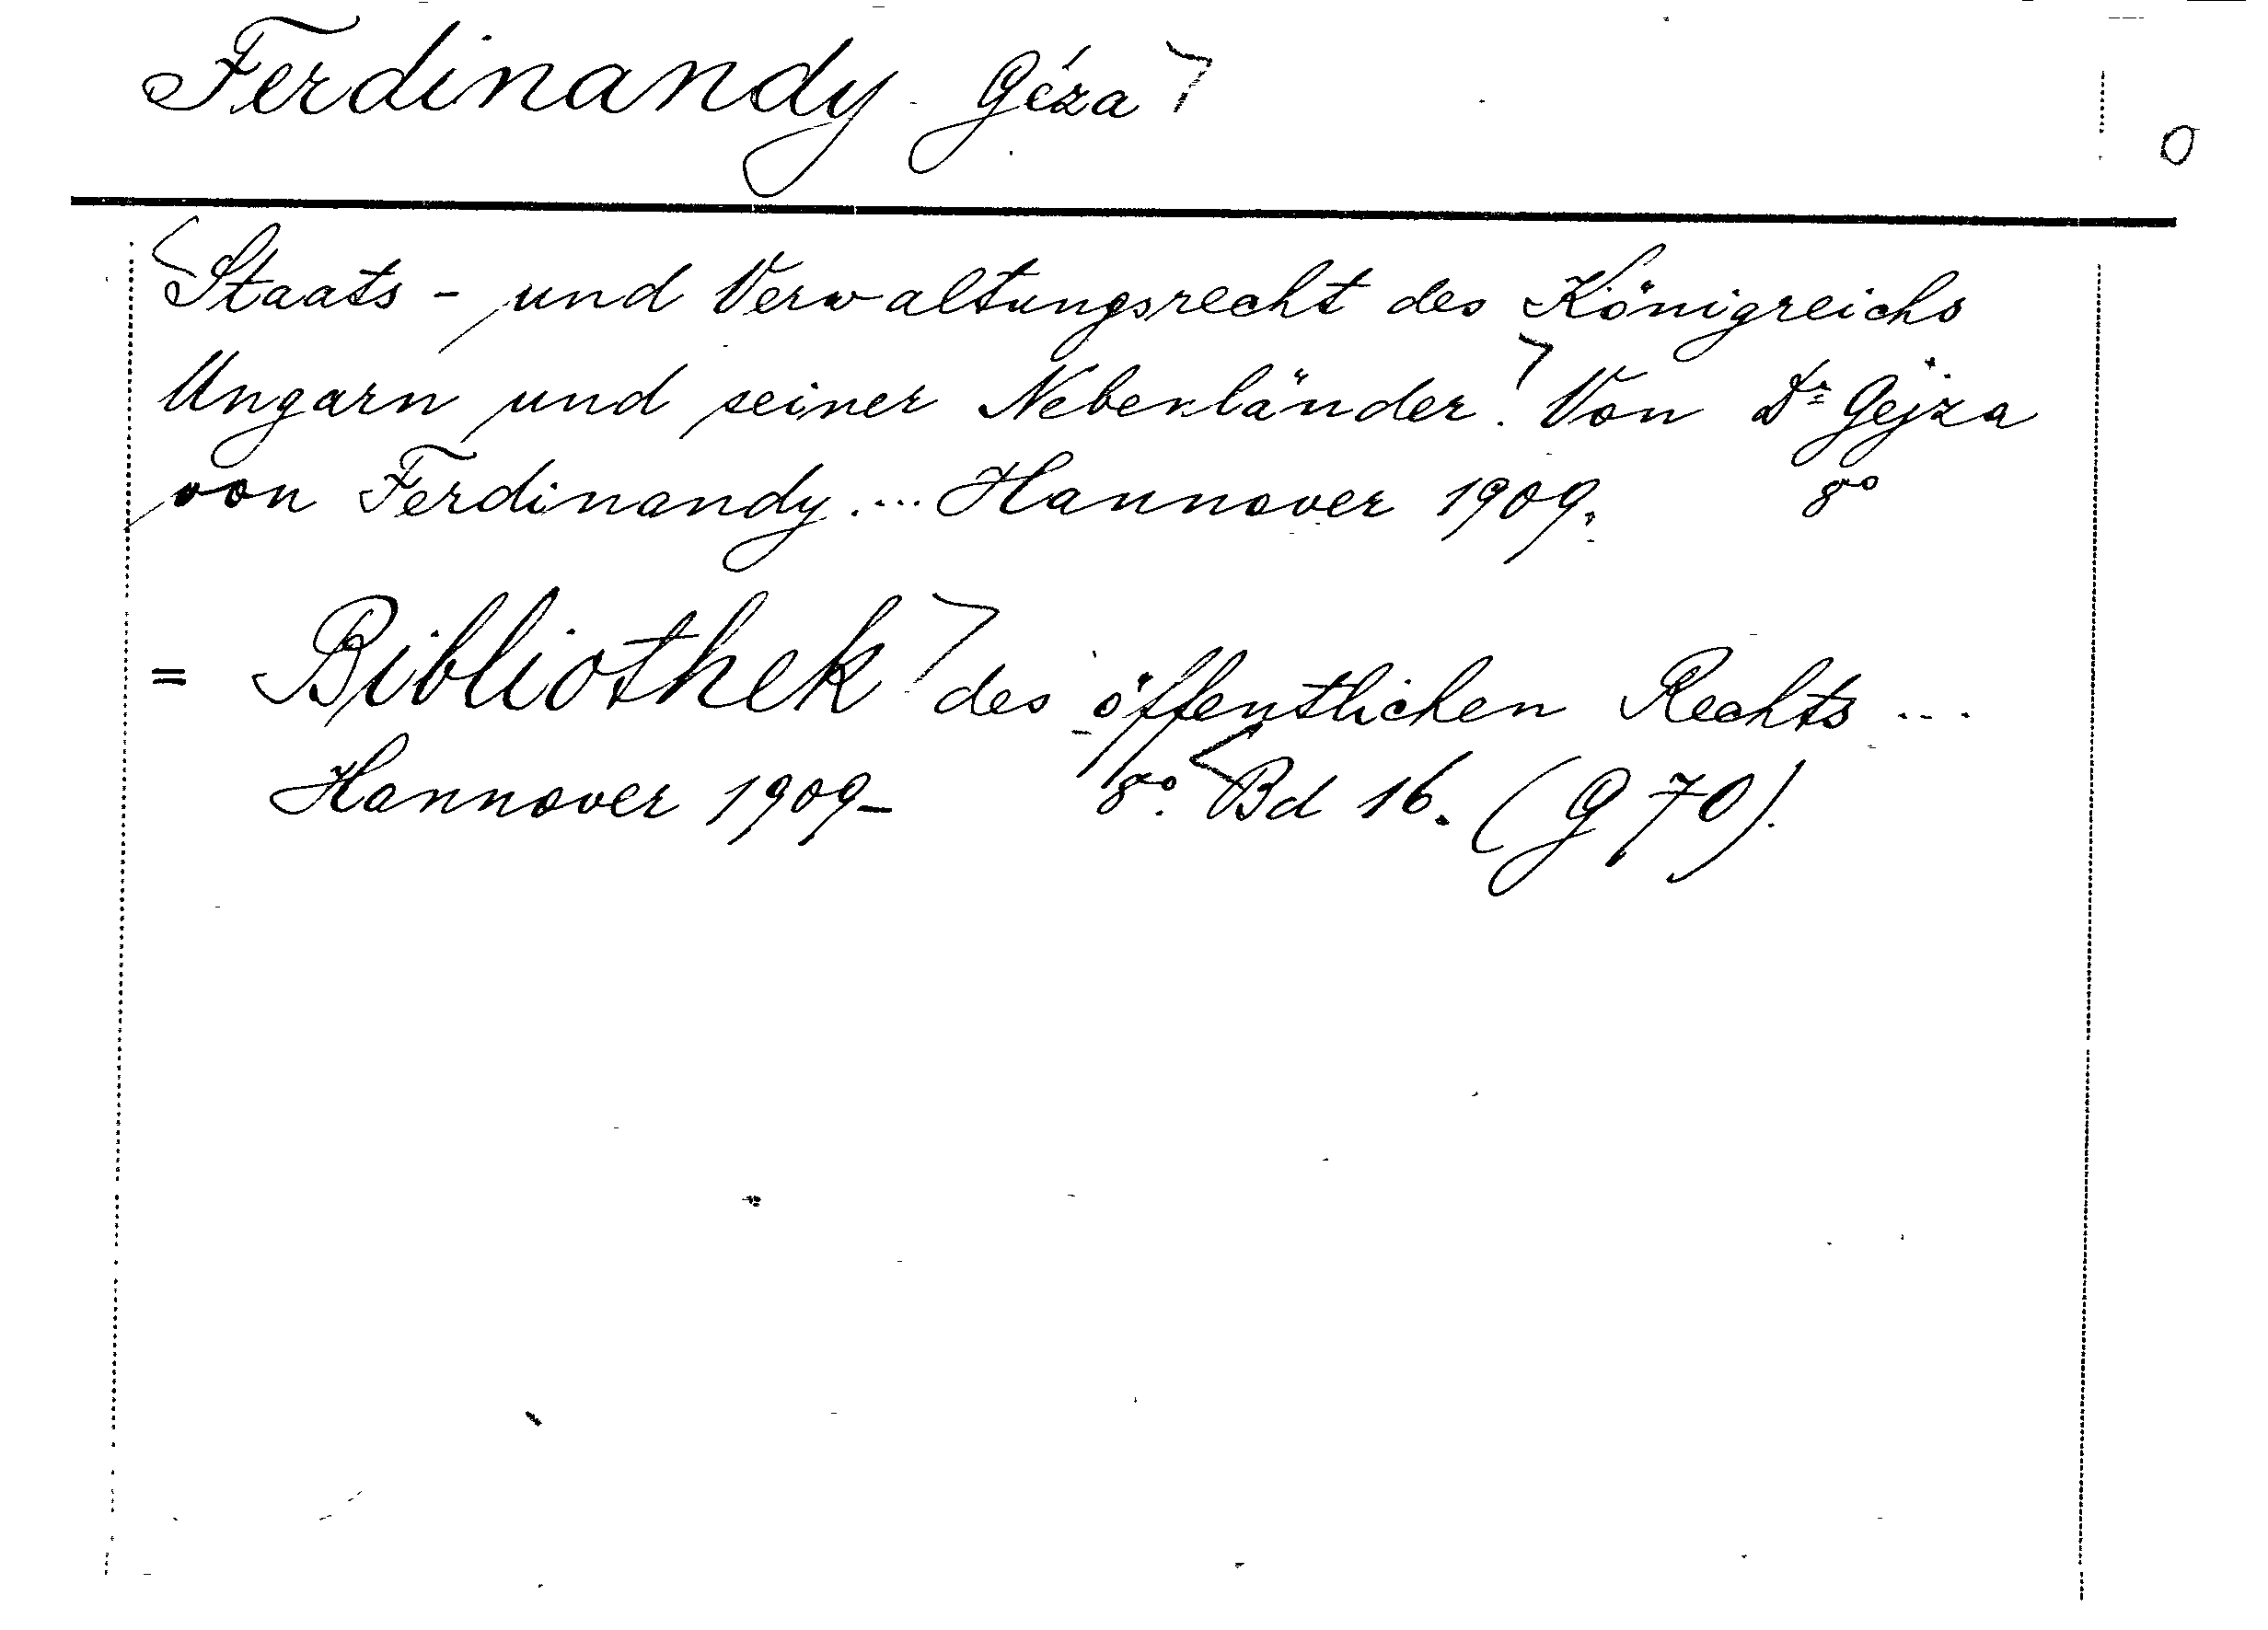 Ferdinandy Géza
0
Staats- und Verwaltungsrecht des Königreichs
Ungarn und seiner Nebenländer. Von Dr Gejza
von Ferdinandy.... Hannover 1909. 8°
= Bibliothek des öffentlichen Rechts ...
Hannover 1909- 8°. Bd 16. (G 70).